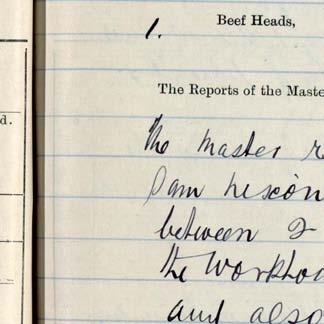 1. Beef Heads,
The Reports of the Maste
d.
The Master r
Sam
between 2
the Workhou
and also